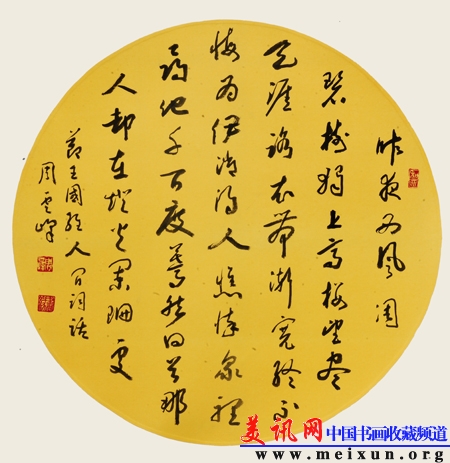 昨夜西风凋
碧树独上高楼望尽
天涯路衣带渐宽终不
悔为伊消得人憔悴众里
寻他千百度蓦然回首那
人却在灯火阑珊处
节王國维人间词话
周云峰
美讯网 中国书画收藏频道
www.meixun.org